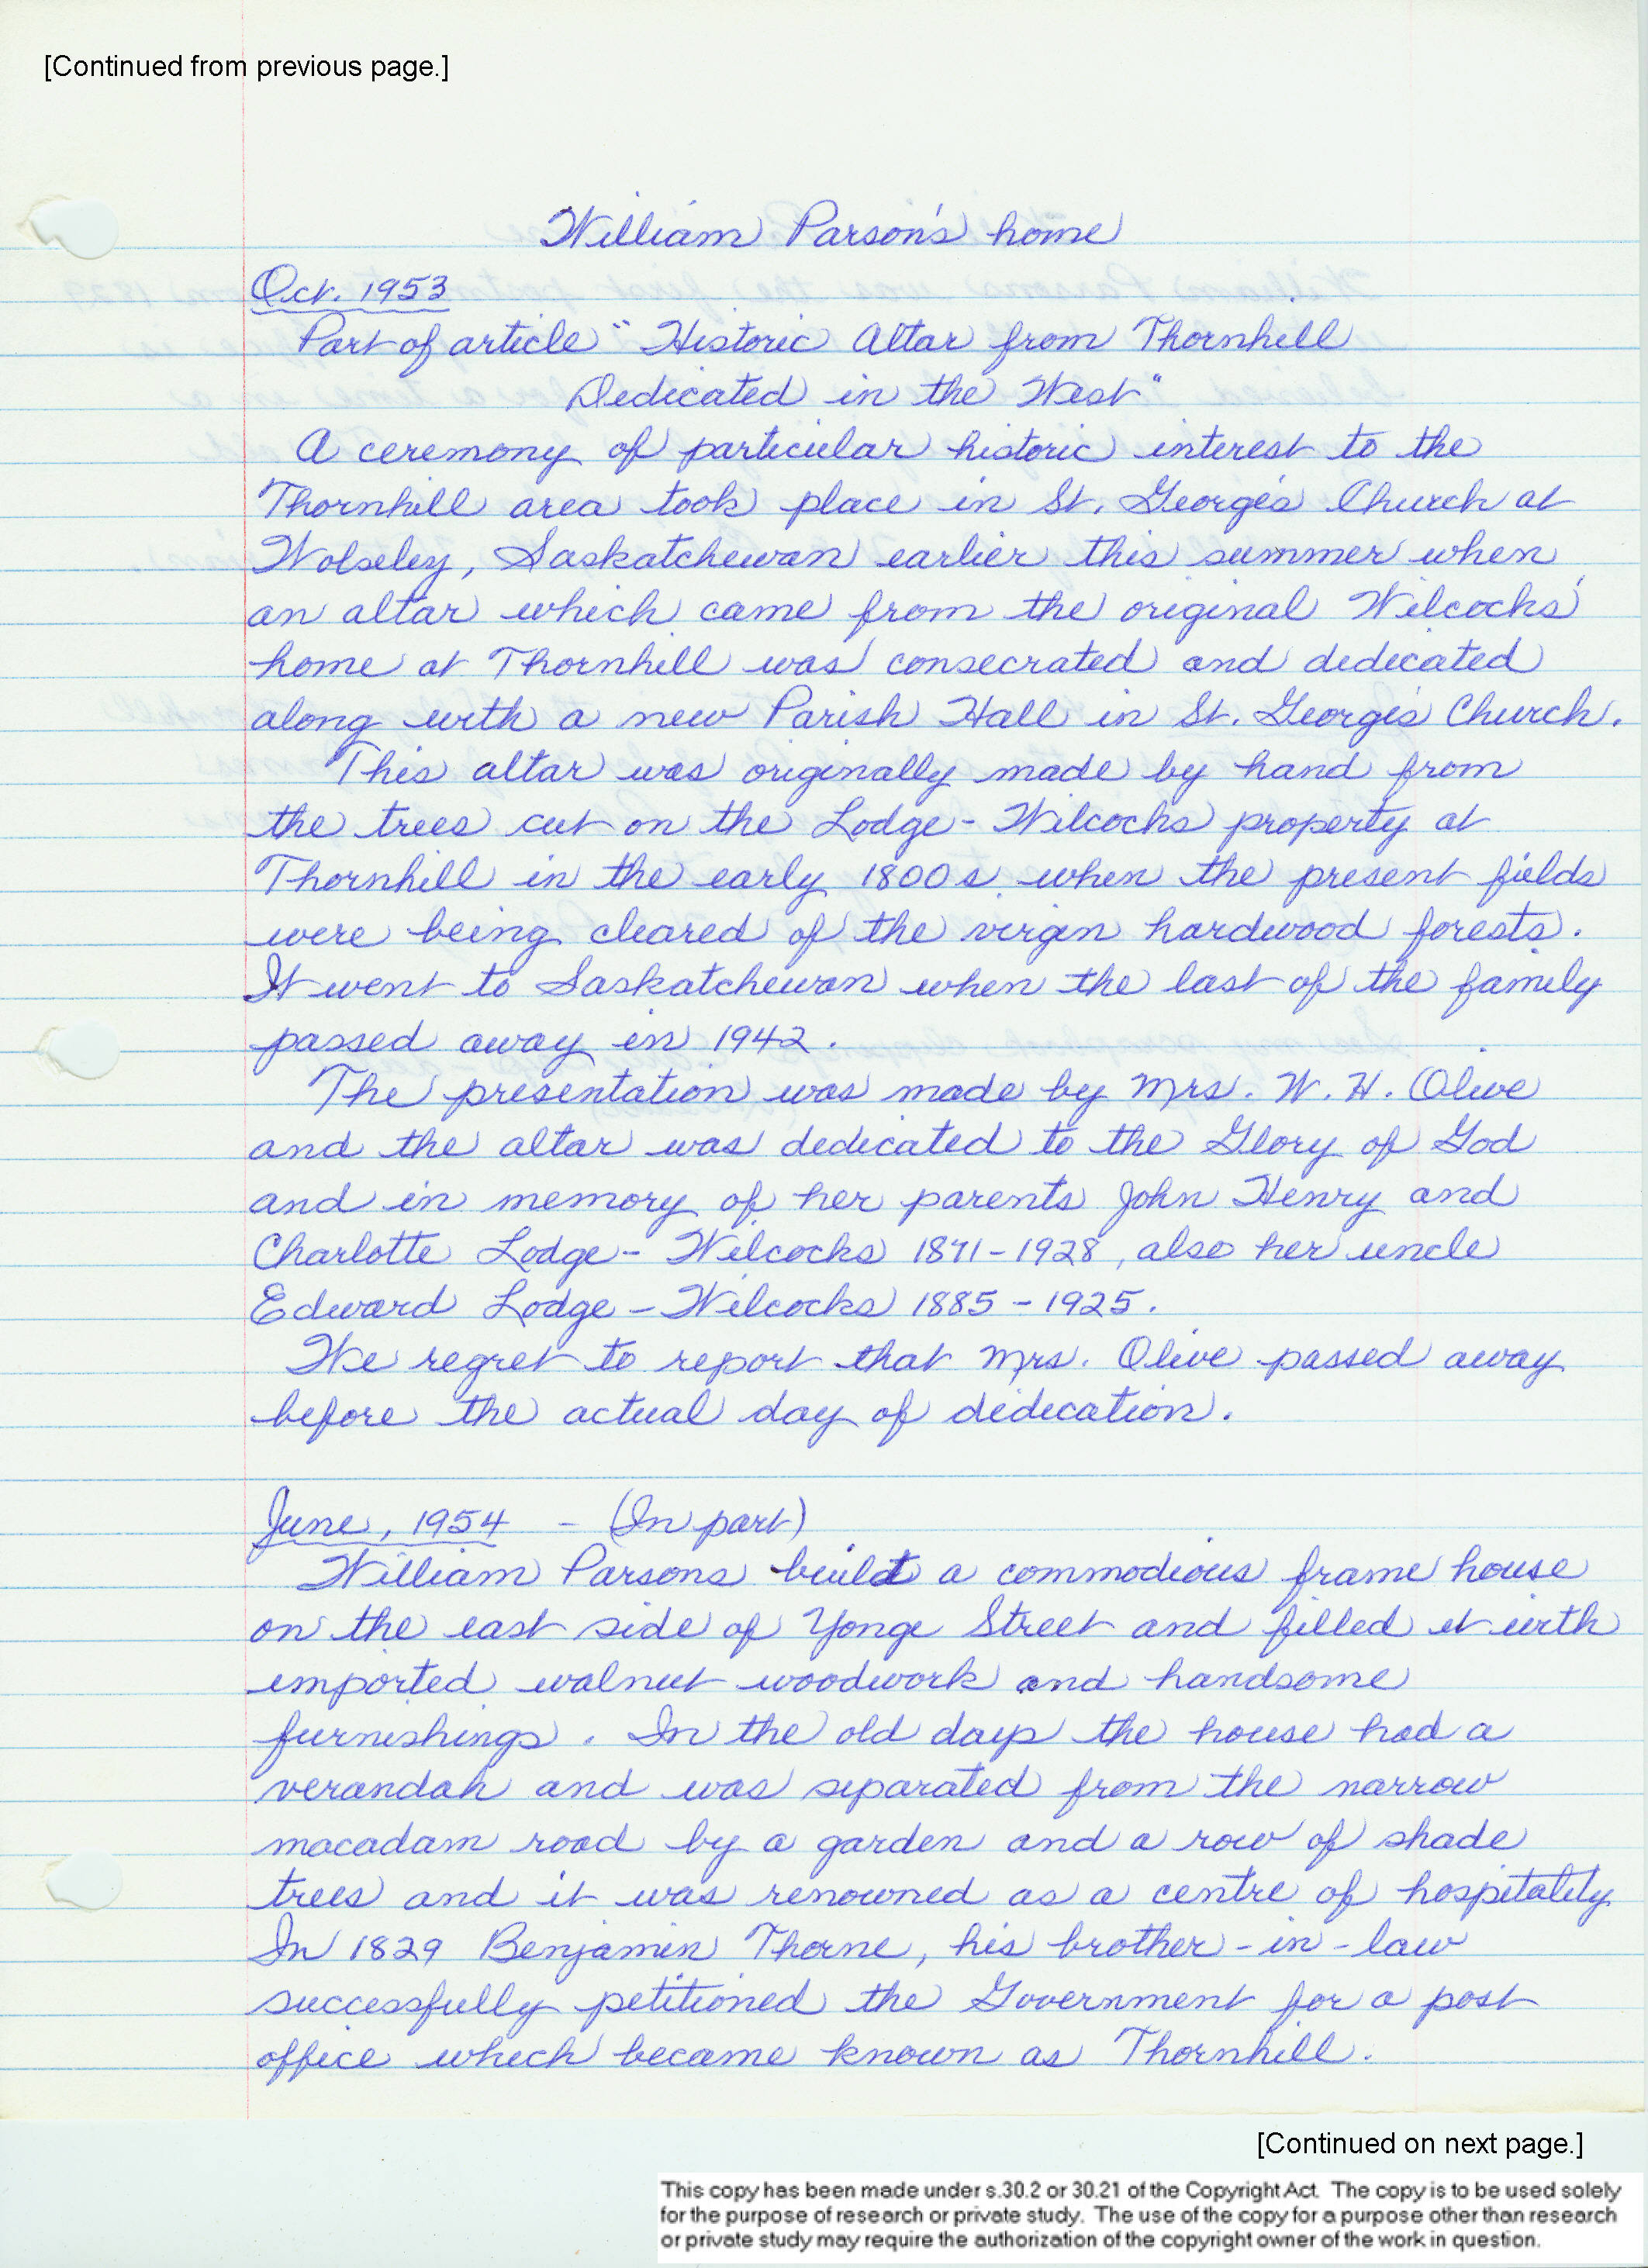 [Continued from previous page.]
William Parson's home
Oct. 1953
Part of article "Historic Altar from Thornhill
Dedicated in the West"
A ceremony of particular historic interest to the
Thornhill area took place in St. George's Church at
Wolseley, Saskatchewan earlier this summer when
an altar which came from the original Wilcocks'
home at Thornhill was consecrated and dedicated
along with a new Parish Hall in St. George's Church.
This altar was originally made by hand from
the trees cut on the Lodge-Wilcocks property at
Thornhill in the early 1800s when the present fields
were being cleared of the virgin hardwood forests.
It went to Saskatchewan when the last of the family
passed away in 1942.
The presentation was made by Mrs. W. H. Olive
and the altar was dedicated to the Glory of God
and in memory of her parents John Henry and
Charlotte Lodge-Wilcocks 1871-1928, also her uncle
Edward Lodge-Wilcocks 1885-1925.
We regret to report that Mrs. Olive passed away
before the actual day of dedication.
June, 1954 - (In part)
William Parsons built a commodious frame house
on the east side of Yonge Street and filled it with
imported walnut woodwork and handsome
furnishings. In the old days the house had a
verandah and was separated from the narrow
macadam road by a garden and a row of shade
trees and it was renowned as a centre of hospitality.
In 1829 Benjamin Thorne, his brother-in-law
successfully petitioned the Government for a post
office which became known as Thornhill.
[Continued on next page.]
This copy has been made under s.30.2 or 30.21 of the Copyright Act. The copy is to be used solely
for the purpose of research or private study. The use of the copy for a purpose other than research
or private study may require the authorization of the copyright owner of the work in question.